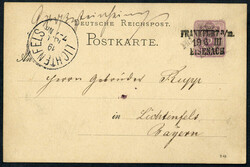 DEUTSCHE REICHSPOST.
POSTKARTE.
FRANKFURT a/m.
19 6 III
EISENACH
LICHTENFELS
19
An Herrn Gebrüder
in Lichtenfels
Bayern